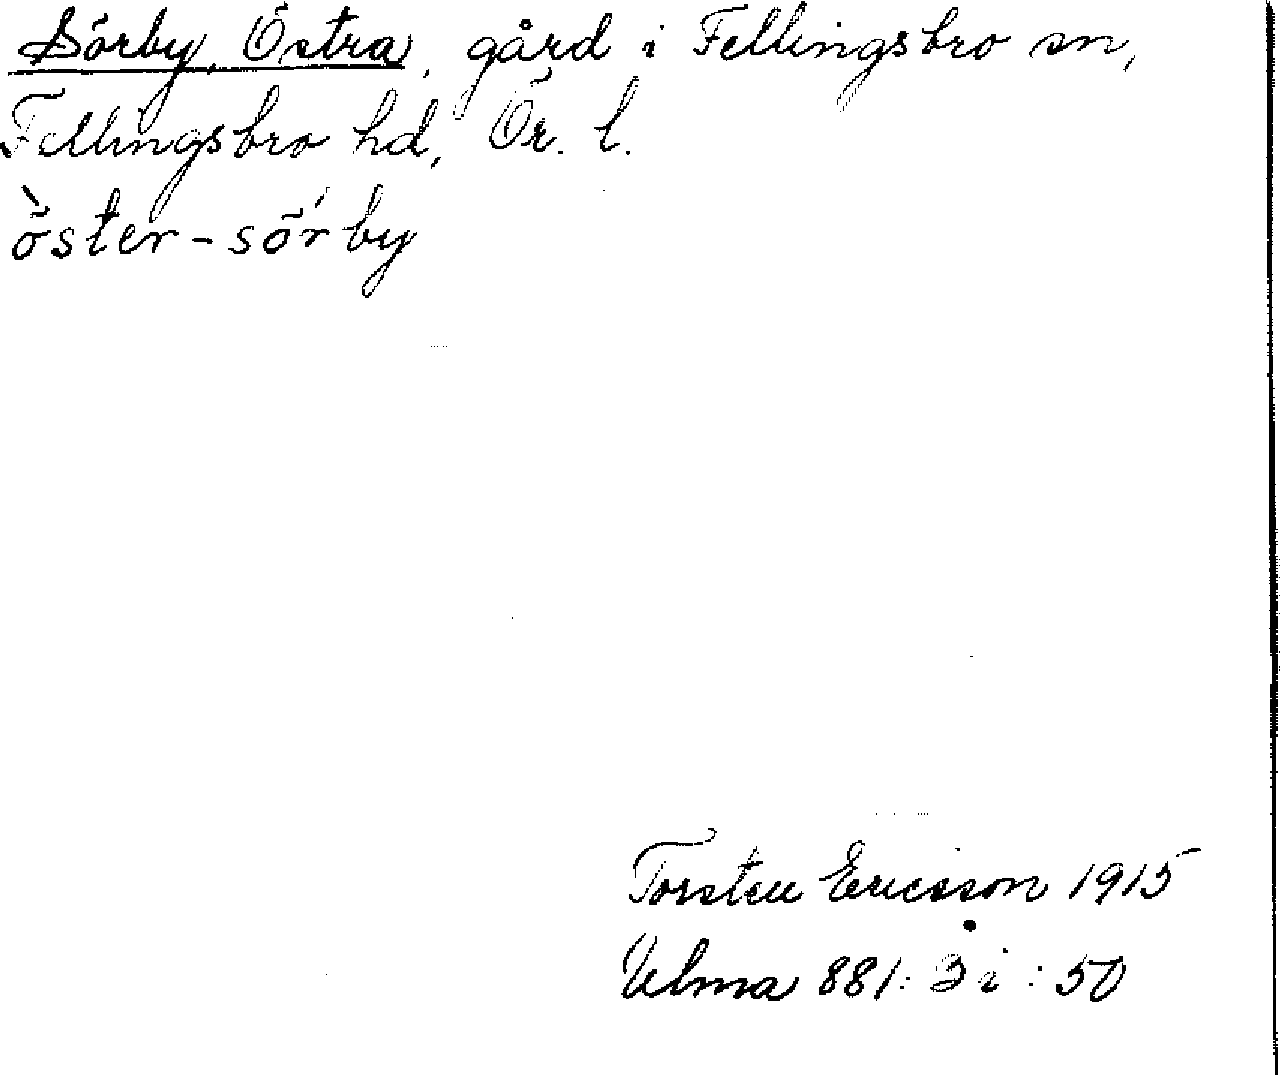 Sörby, Östra, gård i Fellingsbro sn,
Fellingsbro hd, Ör. l.
ö̀ster-sö́rby
Torsten Ericsson 1915
Ulma 881: 3 i : 50